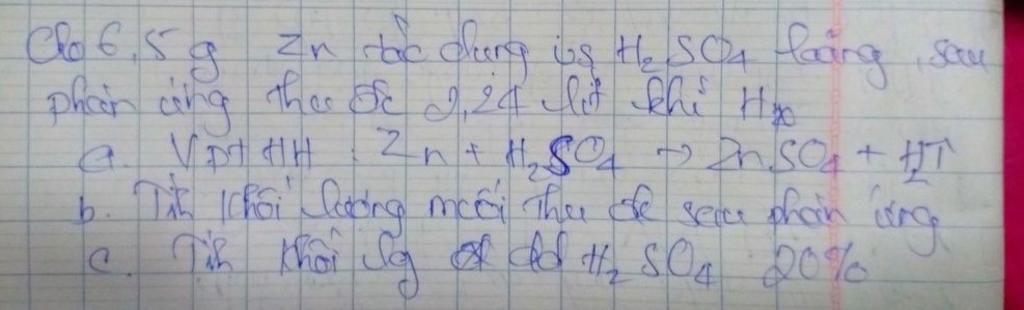 Cho 6,5 g Zn tác dụng vs H₂SO₄ loãng, sau
phản ứng thu đc 2,24 lít khí H₂
a. VPTHH : Zn + H₂SO₄ → ZnSO₄ + H₂↑
b. Tíh khối lượng muối thu đc sau phản ứng
c. Tíh khối lg dd H₂SO₄ 20%